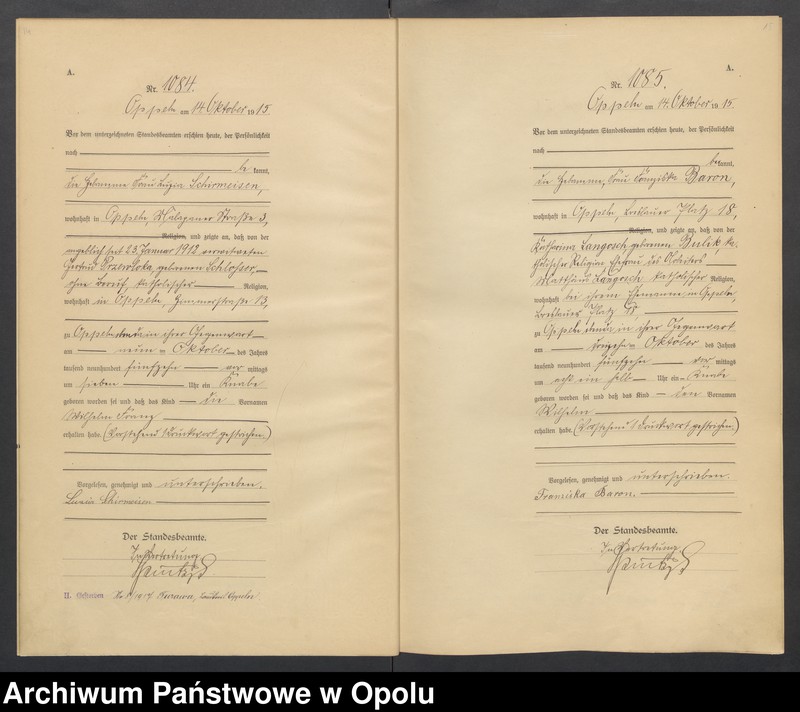 A.
Nr. 1084.
Oppeln am 14. Oktober 1915
Vor dem unterzeichneten Standesbeamten erschien heute, der Persönlichkeit
nach
be kannt,
die Hebamme Frau Luzia Schirmeisen,
wohnhaft in Oppeln, Malapaner Straße 3,
Religion, und zeigte an, daß von der
angeblich seit 23. Januar 1912 verwitweten
Gertrud geborenen Schlosser,
ohne Beruf, katholischer Religion,
wohnhaft in Oppeln, 13,
zu Oppeln in ihrer Gegenwart
am neun Oktober des Jahres
tausend neunhundert fünfzehn vor mittags
um sieben Uhr ein Knabe
geboren worden sei und daß das Kind die Vornamen
Wilhelm Franz
erhalten habe. (Vorstehend Druckwort gestrichen.)
Vorgelesen, genehmigt und unterschrieben.
Luzia Schirmeisen
Der Standesbeamte.
In Vertretung
A.
Nr. 1085.
Oppeln am 14. Oktober 1915
Vor dem unterzeichneten Standesbeamten erschien heute, der Persönlichkeit
nach
be kannt,
die Hebamme, Frau Franziska Baron,
wohnhaft in Oppeln, Breslauer Platz 18,
Religion, und zeigte an, daß von der
Katharina Langosch, geborenen Bulik, ka-
tholischer Religion, Ehefrau des Arbeiters
Matthäus Langosch katholischer Religion,
wohnhaft bei ihrem Ehemanne in Oppeln,
Breslauer Platz 18,
zu Oppeln in ihrer Gegenwart
am Oktober des Jahres
tausend neunhundert fünfzehn vor mittags
um acht ein halb Uhr ein Knabe
geboren worden sei und daß das Kind den Vornamen
Wilhelm
erhalten habe. (Vorstehend Druckwort gestrichen.)
Vorgelesen, genehmigt und unterschrieben.
Franziska Baron.
Der Standesbeamte.
In Vertretung
Archiwum Państwowe w Opolu